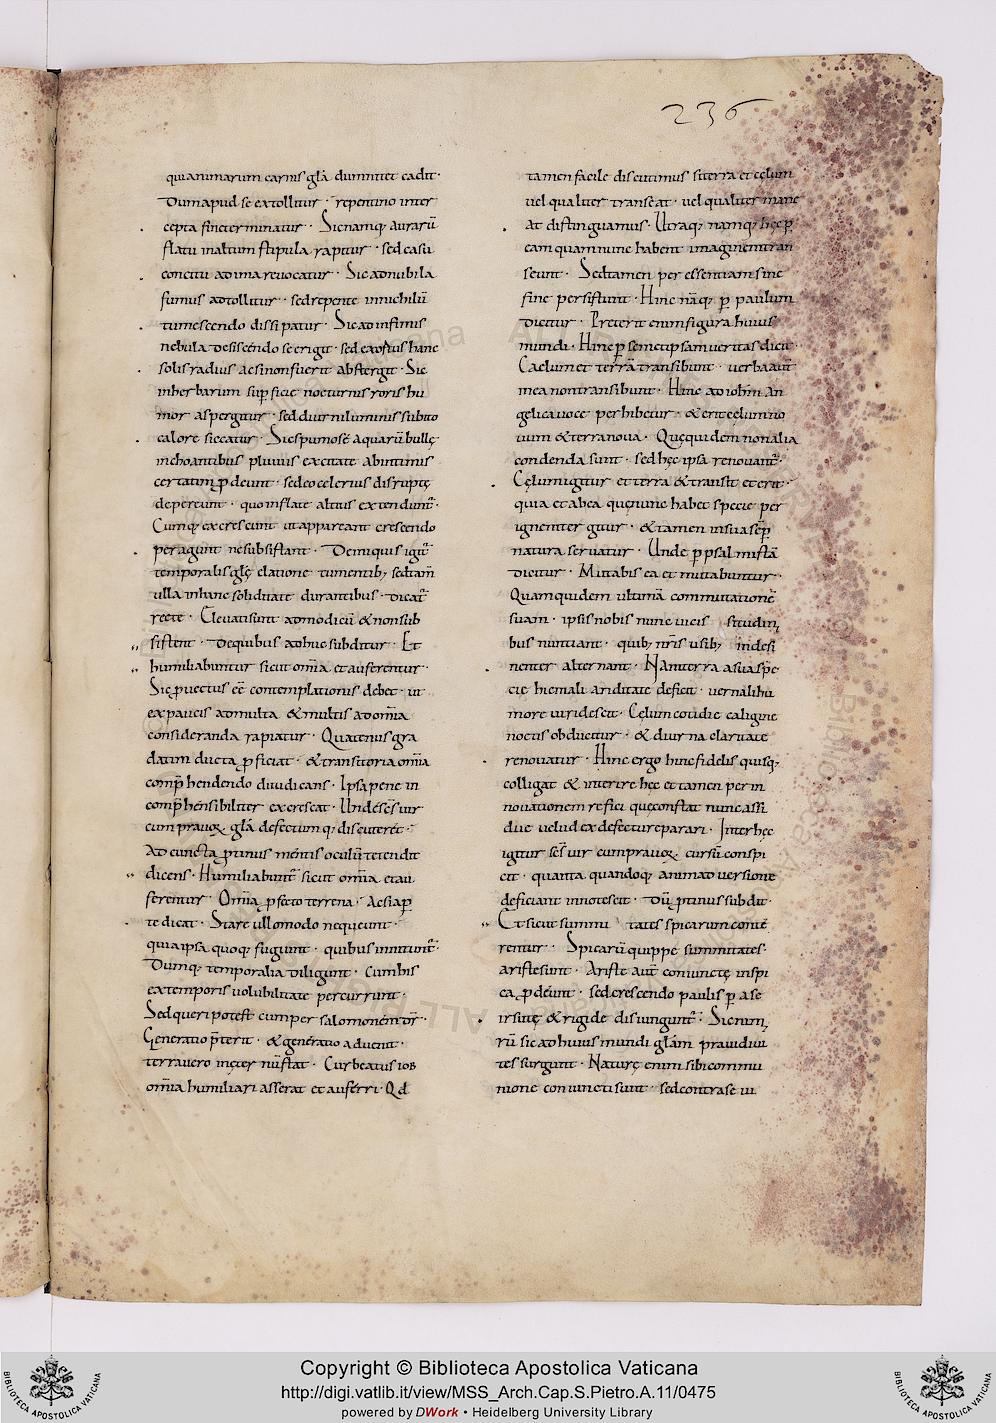 236
qui animarum carnis gl̄a dum nitet cadit·
Dum apud se extollitur · repentino inter
cepta fine terminatur · Sic namq; aurarū
flatu in altum stipula rapitur · sed casu
concitu ad ima revocatur · Sic ad nubila
fumus adtollitur · sed repente in nichilū
tumescendo dissipatur · Sic ad infimis
nebula desiscendo se erigit · sed exortus hanc
solis radius ac si non fuerit abstergit · Sic
in herbarum sup̱ficie nocturni roris hu
mor aspergitur · sed diurni luminis subito
calore siccatur · Sic spumosę aquarū bullę
inchoantibus pluviis excitatę ab intimis
certatim ꝓdeunt · sed eo celerius disruptę
depereunt · quo inflatę altius extendunt᷑·
Cumq; excrescunt ut appareant crescendo
peragunt ne subsistant · De iniquis igit᷑
temporalis glę elatione tumentib; sed tam̄
ulla in hanc soliditate durantibus · dicat᷑
recte · Elevati sunt ad modicū & non sub
sistent · De quibus adhuc subditur · Et
humiliabuntur sicut om̄ia et auferentur·
Sic ꝓvectus eē contemplationis debet · ut
ex paucis ad multa & multis ad om̄ia
consideranda rapiatur · Quatenus gra
datim ducta ꝓficiat · & transitoria om̄ia
comp̄hendendo diiudicans · Ipsa pene in
comp̄hensibiliter excrescat · Unde sēs vir
cum pravoꝝ gl̄a defectumq; discuteret·
Ad cuncta ꝓtinus mentis oculū tetendit
dicens · Humiliabunt᷑ sicut om̄ia et au
ferentur · Om̄ia ꝓfecto terrena · Ac si ap̱
te dicat · Stare ullomodo nequeunt ·
quia ipsa quoq; fugiunt · quibus innitunt᷑·
Dumq; temporalia diligunt · cum his
ex temporis volubilitate percurrunt·
Sed queri potest cum per salomonem dr̄·
Generatio p̄terit · & generatio advenit·
terra vero in ęter nū stat · Cur beatus iob
om̄ia humiliari asserat et auferri · Qd
tamen facile discutimus si terra et cęlum
vel qualiter transeat · vel qualiter mane
at distinguamus · Utraq; namq; hęc p̱
eam quam nunc habent imaginem tran
seunt · Sed tamen per essentiam sine
fine persistunt · Hinc nāq; p̱ paulum
dicitur · Preterit enim figura huius
mundi · Hinc p̱ semet ipsam veritas dicit·
Caelum et terrā transibunt · verba aut̄
mea non transibunt · Hinc ad iohīn an
gelica voce perhibetur · & erit cęlum no
vum & terra nova · Quę quidem non alia
condenda sunt · sed hęc ipsa renovant᷑·
Cęlum igitur et terra & transit et erit·
quia et ab ea quę nunc habet specie per
ignem tergitur · & tamen in sua sēp̱
natura servatur · Unde p̱ psalmistā
dicitur · Mutabis ea et mutabuntur·
Quam quidem ultimā commutationē
suam · ipsis nobis nunc vicissitudini
bus nuntiant · quib; nr̄is usib; indesi
nenter alternant · Nam terra a sua spē
cie hiemali ariditate deficit · vernali hu
more viridescit · Cęlum cotidie caligine
noctis obducitur · & diurna claritate
renovatur · Hinc ergo hinc fidelis quisq;
colligat & interire hęc et tamen per in
novationem refici quę constat nunc assi
due velud ex defectu reparari · Inter hęc
igitur sēs vir cum pravoꝝ cursū conspi
cit · quanta quandoq; animadversione
deficiant innotescit · Dū ꝓtinus subdit·
Et sicut summitates spicarum conte
rentur · Spicarū quippe summitates
aristę sunt · Aristę aut̄ coniunctę in spi
ca ꝓdeunt · sed crescendo paulis p̱ a se
irsutę & rigide disiungunt᷑ · Sic nim
rū sic ad huius mundi gl̄am pravi divi
tes surgunt · Naturę enim sibi commu
nione coniuncti sunt · sed contra se vi
Copyright © Biblioteca Apostolica Vaticana
http://digi.vatlib.it/view/MSS_Arch.Cap.S.Pietro.A.11/0475
powered by DWork • Heidelberg University Library